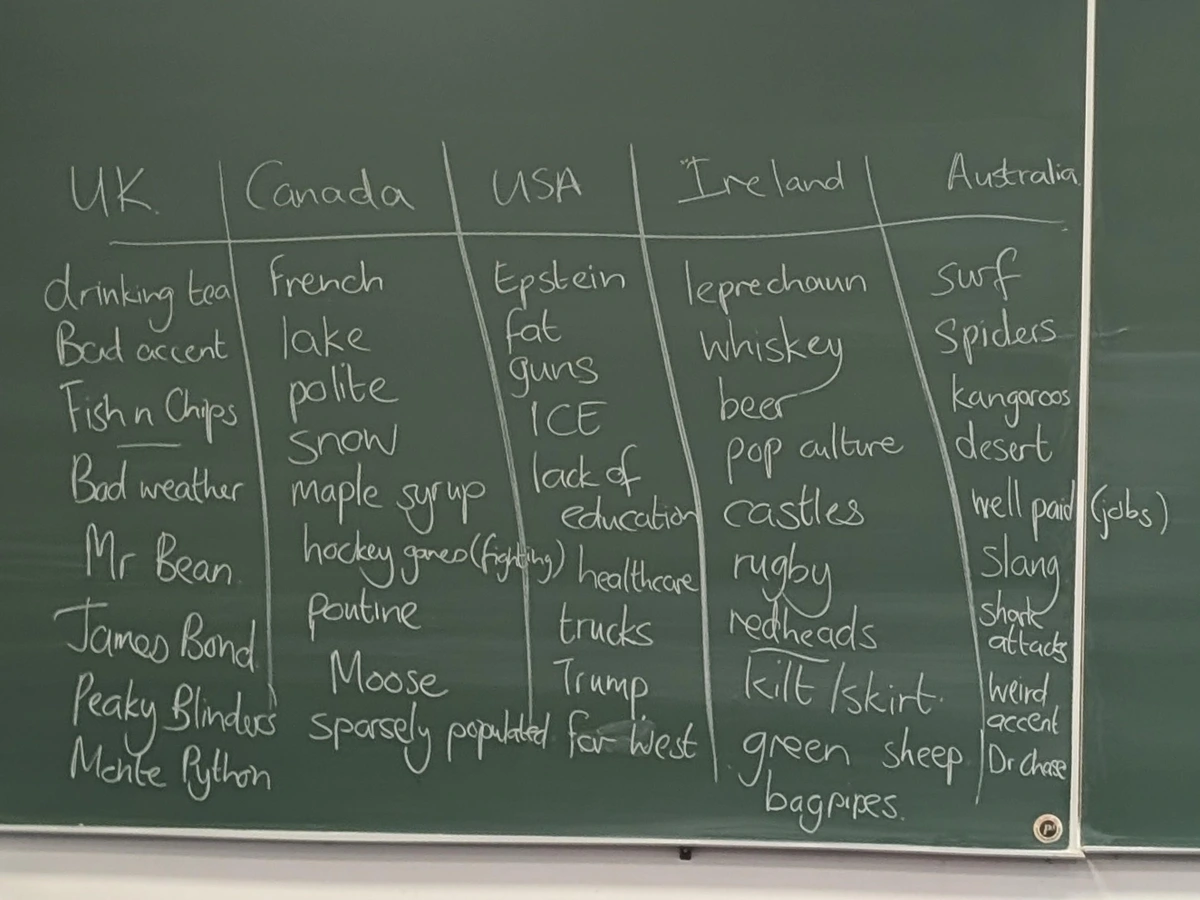 UK.
drinking tea
Bad accent
Fish n Chips
Bad weather
Mr Bean.
James Bond
Peaky Blinders
Monte Python
Canada
French
lake
polite
snow
Maple syrup
hockey games (fighting)
poutine
Moose
sparsely populated
USA
Epstein
fat
guns
ICE
lack of
education
healthcare
trucks
Trump
far West
Ireland
leprechaun
whiskey
beer
pop culture
castles
rugby
redheads
kilt/skirt.
green sheep
bagpipes.
Australia
surf
Spiders
kangaroos
desert
well paid (jobs)
Slang
shark
attacks
weird
accent
Dr Chase